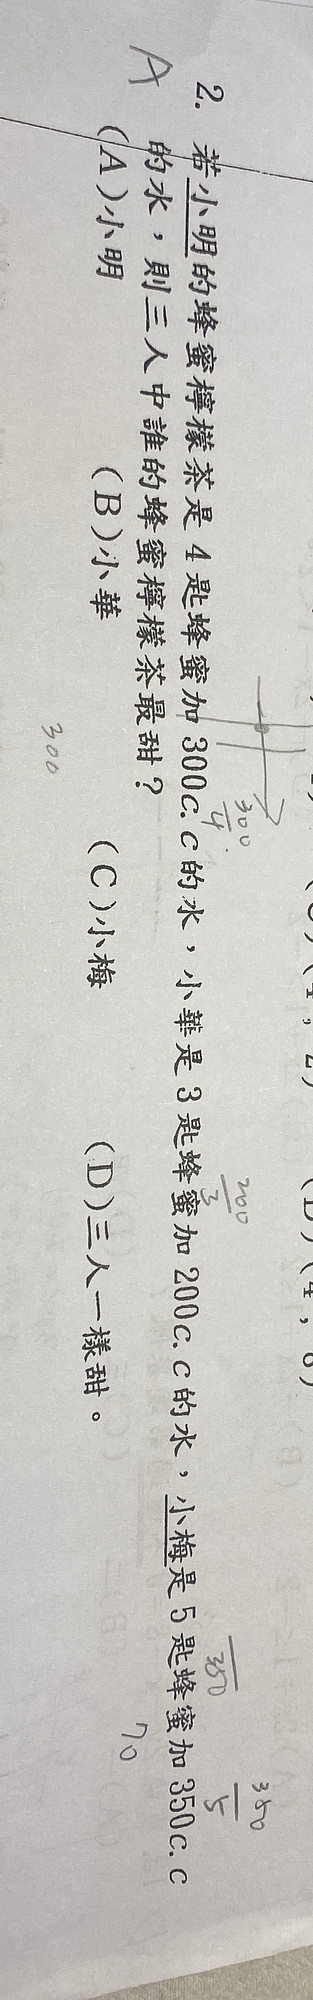 (C)(4,2) (D)(4,6)
A
2. 若小明的蜂蜜檸檬茶是4匙蜂蜜加300c.c的水，小華是3匙蜂蜜加200c.c的水，小梅是5匙蜂蜜加350c.c
的水，則三人中誰的蜂蜜檸檬茶最甜？
(A)小明 (B)小華 (C)小梅 (D)三人一樣甜。
300
4
200
3
350
350
5
70
300